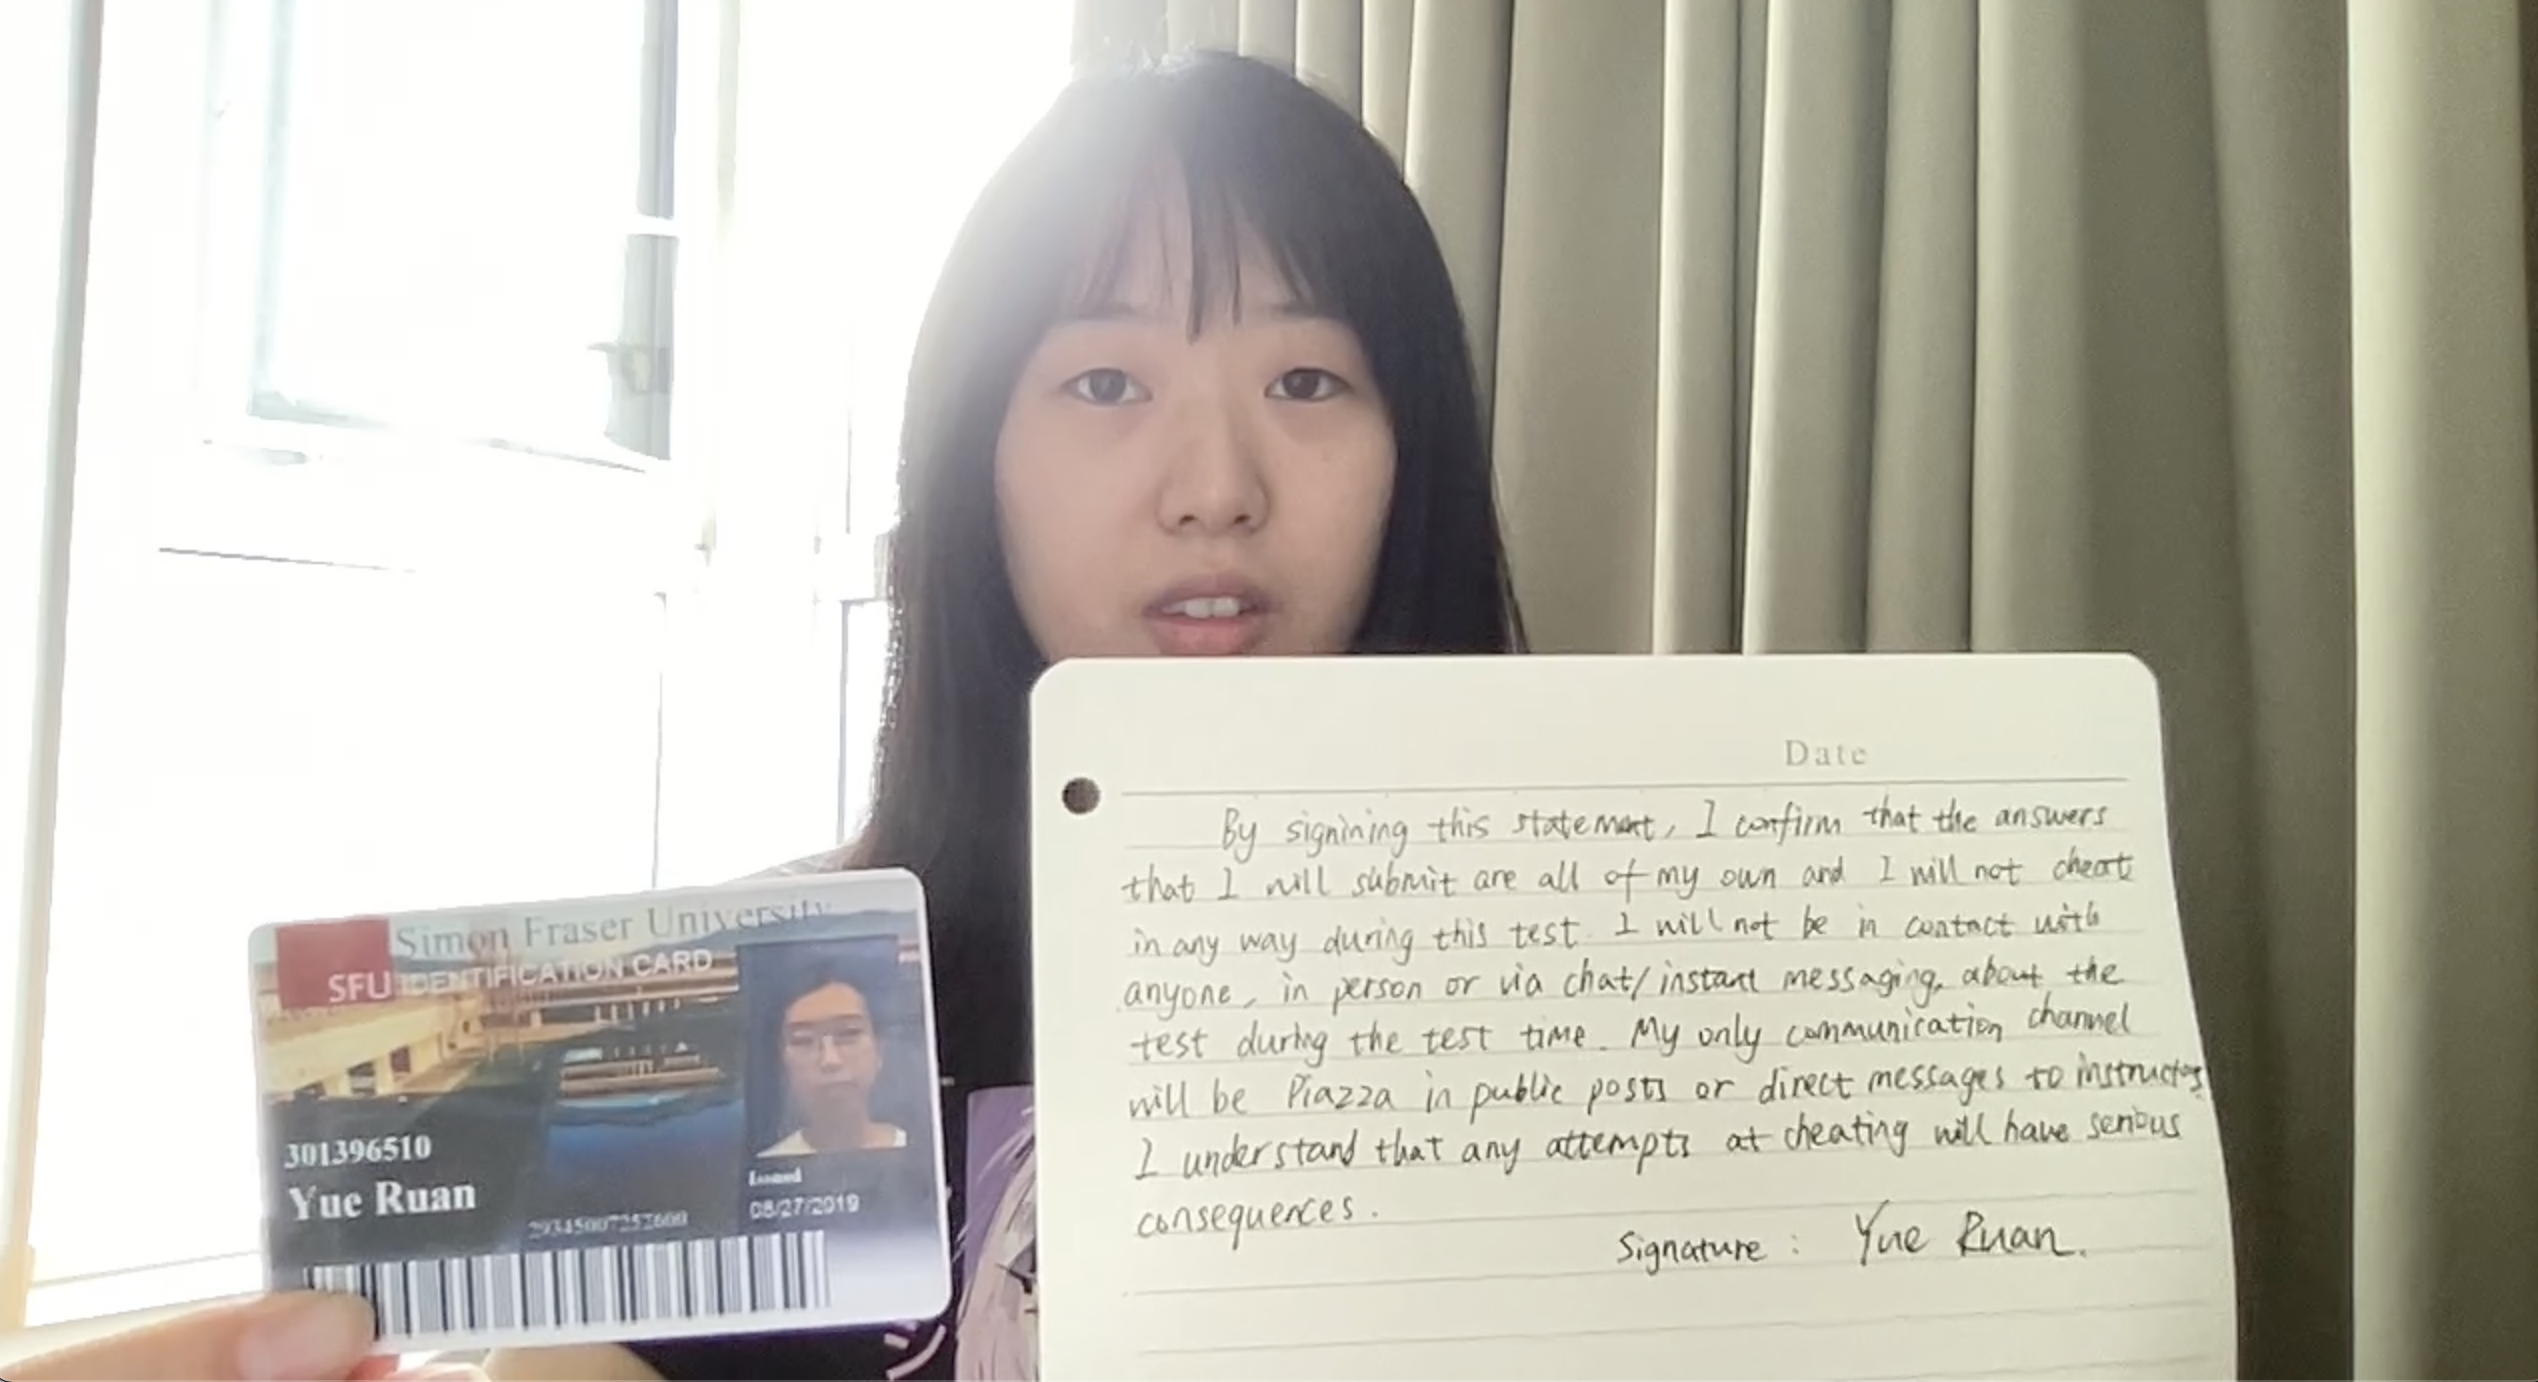 Simon Fraser University
SFU IDENTIFICATION CARD
301396510
Yue Ruan
Issued
08/27/2019
Date
By signining this statement, I confirm that the answers
that I will submit are all of my own and I will not cheat
in any way during this test. I will not be in contact with
anyone, in person or via chat/instant messaging, about the
test during the test time. My only communication channel
will be Piazza in public posts or direct messages to instructors.
I understand that any attempts at cheating will have serious
consequences.
Signature : Yue Ruan.